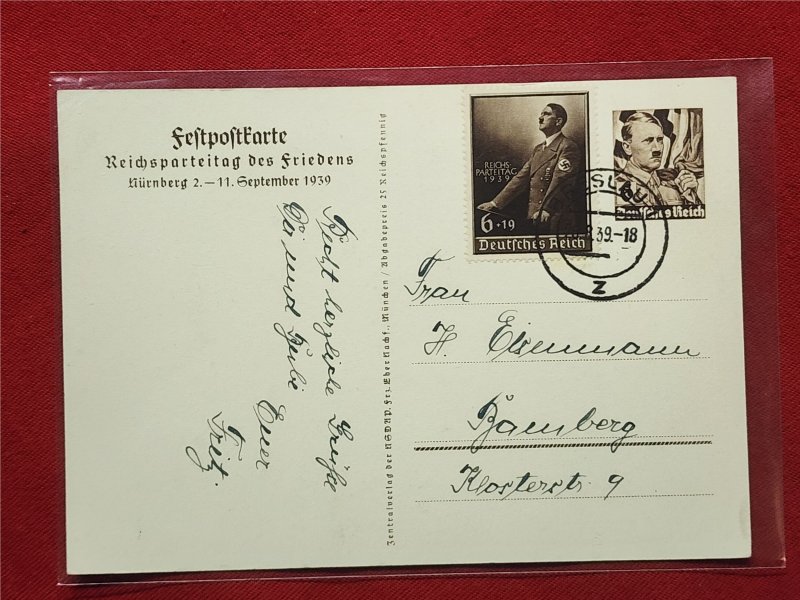 Festpostkarte
Reichsparteitag des Friedens
Nürnberg 2.–11. September 1939
Recht herzliche Grüße
Dir und
Euer
Fritz.
Zentralverlag der NSDAP. Frz. Eher Nachf., München / Abgabepreis 25 Reichspfennig
REICHS
PARTEITAG
1939
6+19
Deutsches Reich
Deutsches Reich
ESLAU
39.-18
Z
Frau
H. Eisenmann
Bamberg
Klosterstr. 9